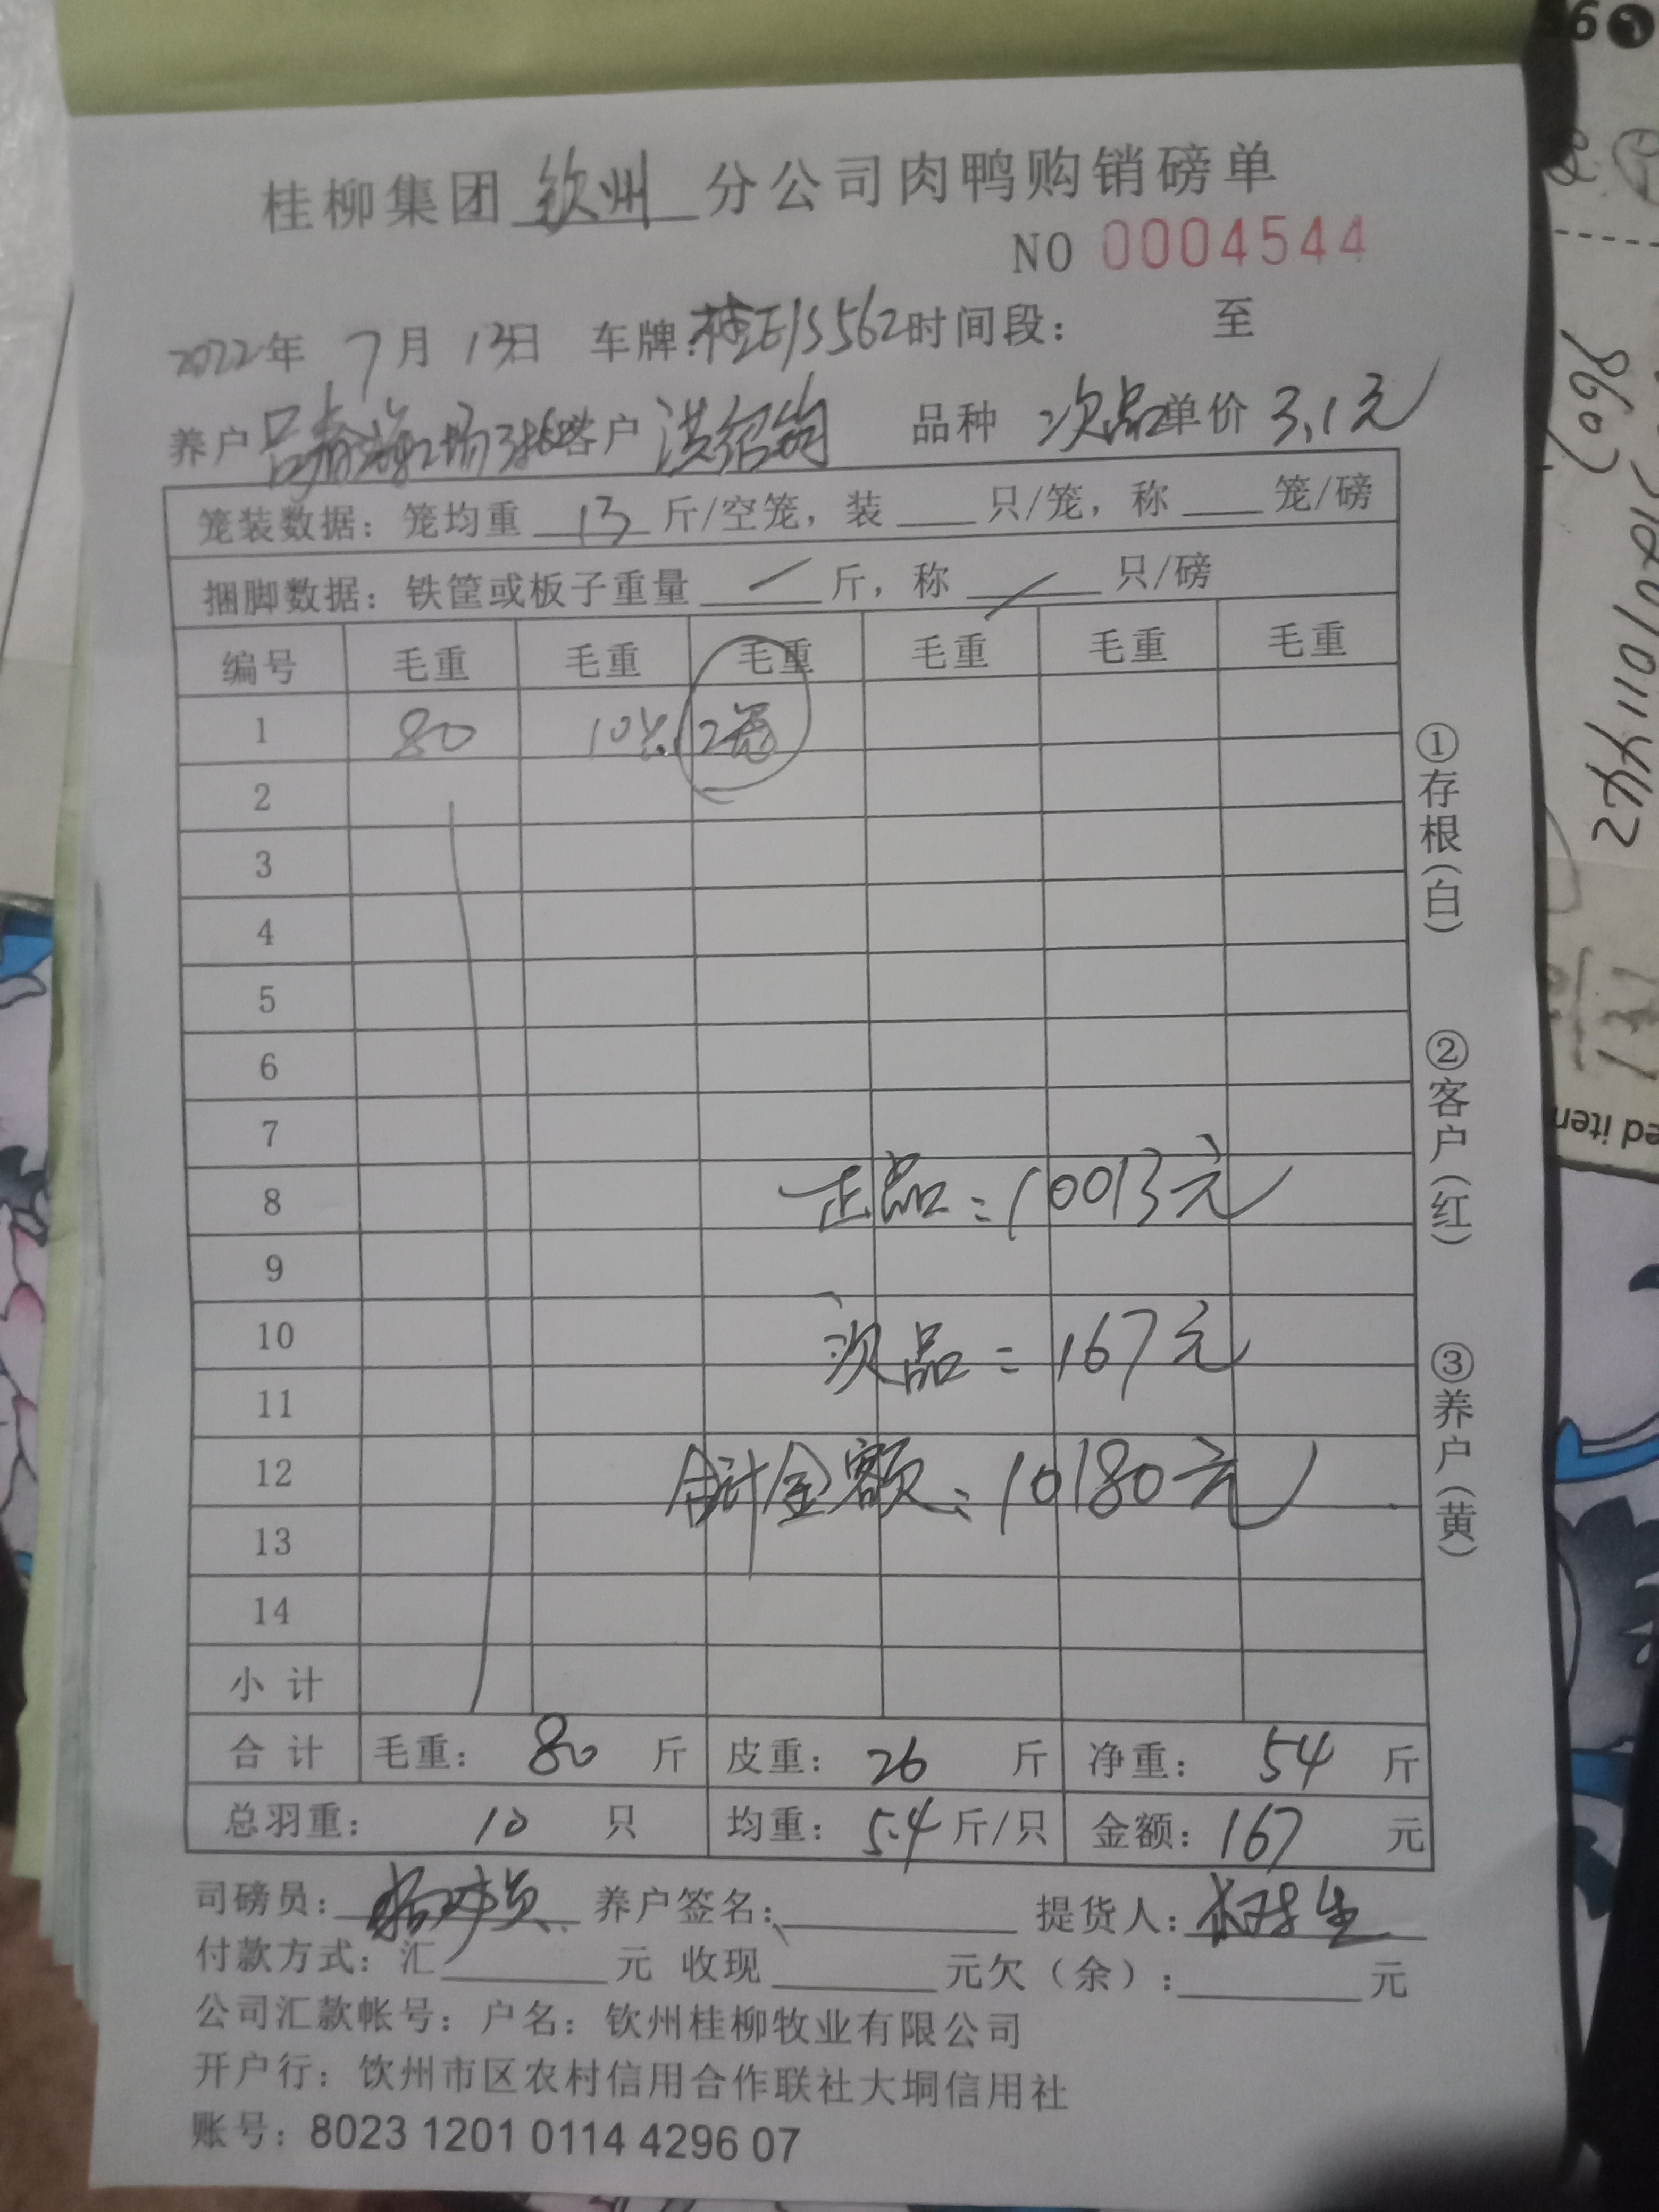 桂柳集团 钦州 分公司肉鸭购销磅单
NO 0004544
2022年 7月 13日 车牌:桂E/S562时间段: 至
养户 客户 洪绍 品种 次品 单价 3.1元
笼装数据: 笼均重 13 斤/空笼, 装 ___ 只/笼, 称 ___ 笼/磅
捆脚数据: 铁筐或板子重量 / 斤, 称 / 只/磅
编号 毛重 毛重 毛重 毛重 毛重 毛重
1 80 10只 2笼
2
3
4
5
6
7
8 正品:10013元
9
10 次品=167元
11
12 合计金额:10180元
13
14
小计
合计 毛重: 80 斤 皮重: 26 斤 净重: 54 斤
总羽重: 10 只 均重: 5.4 斤/只 金额: 167 元
司磅员: 养户签名: 提货人:
付款方式: 汇 元 收现 元欠(余): 元
公司汇款帐号: 户名: 钦州桂柳牧业有限公司
开户行: 钦州市区农村信用合作联社大垌信用社
账号: 8023 1201 0114 4296 07
①存根(白)
②客户(红)
③养户(黄)
ed iten